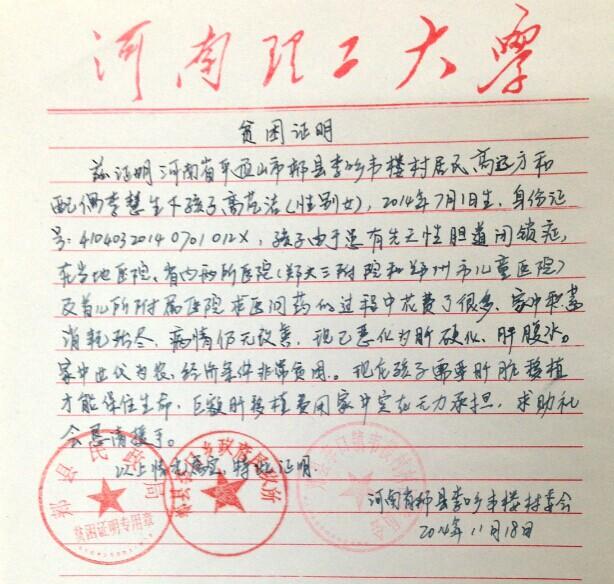 河南理工大学
贫困证明
兹证明河南省平顶山市郏县李口乡韦楼村居民高远方和
配偶李慧生下孩子高艺洁(性别女),2014年7月1日生,身份证
号:41040320140701012X,孩子由于患有先天性胆道闭锁症,
在当地医院、省内两所医院(郑大三附院和郑州市儿童医院)
及首儿所附属医院求医问药的过程中花费了很多,家中积蓄
消耗殆尽,病情仍无改善,现已恶化为肝硬化、肝腹水。
家中世代为农,经济条件非常贫困。现在孩子需要肝脏移植
才能保住生命,巨额肝移植费用家中实在无力承担,求助社
会恳请援手。
以上情况属实,特此证明
郏县民政局
贫困证明专用章
河南省郏县李口乡韦楼村委会
2014年11月18日